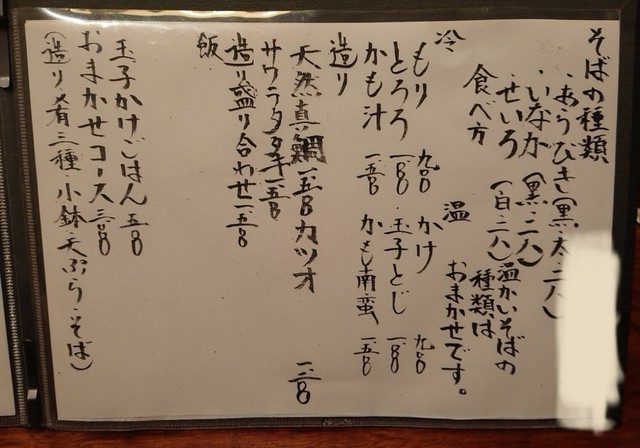 そばの種類
・あらびき(黒・太・二八)
・いなか(黒・二八)
・せいろ(白・二八)
温かいそばの
種類は
おまかせです。
食べ方
冷
もり 九〇〇
とろろ
かも汁 一五〇〇
温
かけ 九〇〇
・玉子とじ
かも南蛮 一五〇〇
造り
天然真鯛 一五〇〇
カツオ
サワラタタキ 一五〇〇
造り盛り合わせ 一五〇〇
飯
玉子かけごはん 五〇〇
おまかせコース
(造り肴三種小鉢天ぷら・そば)